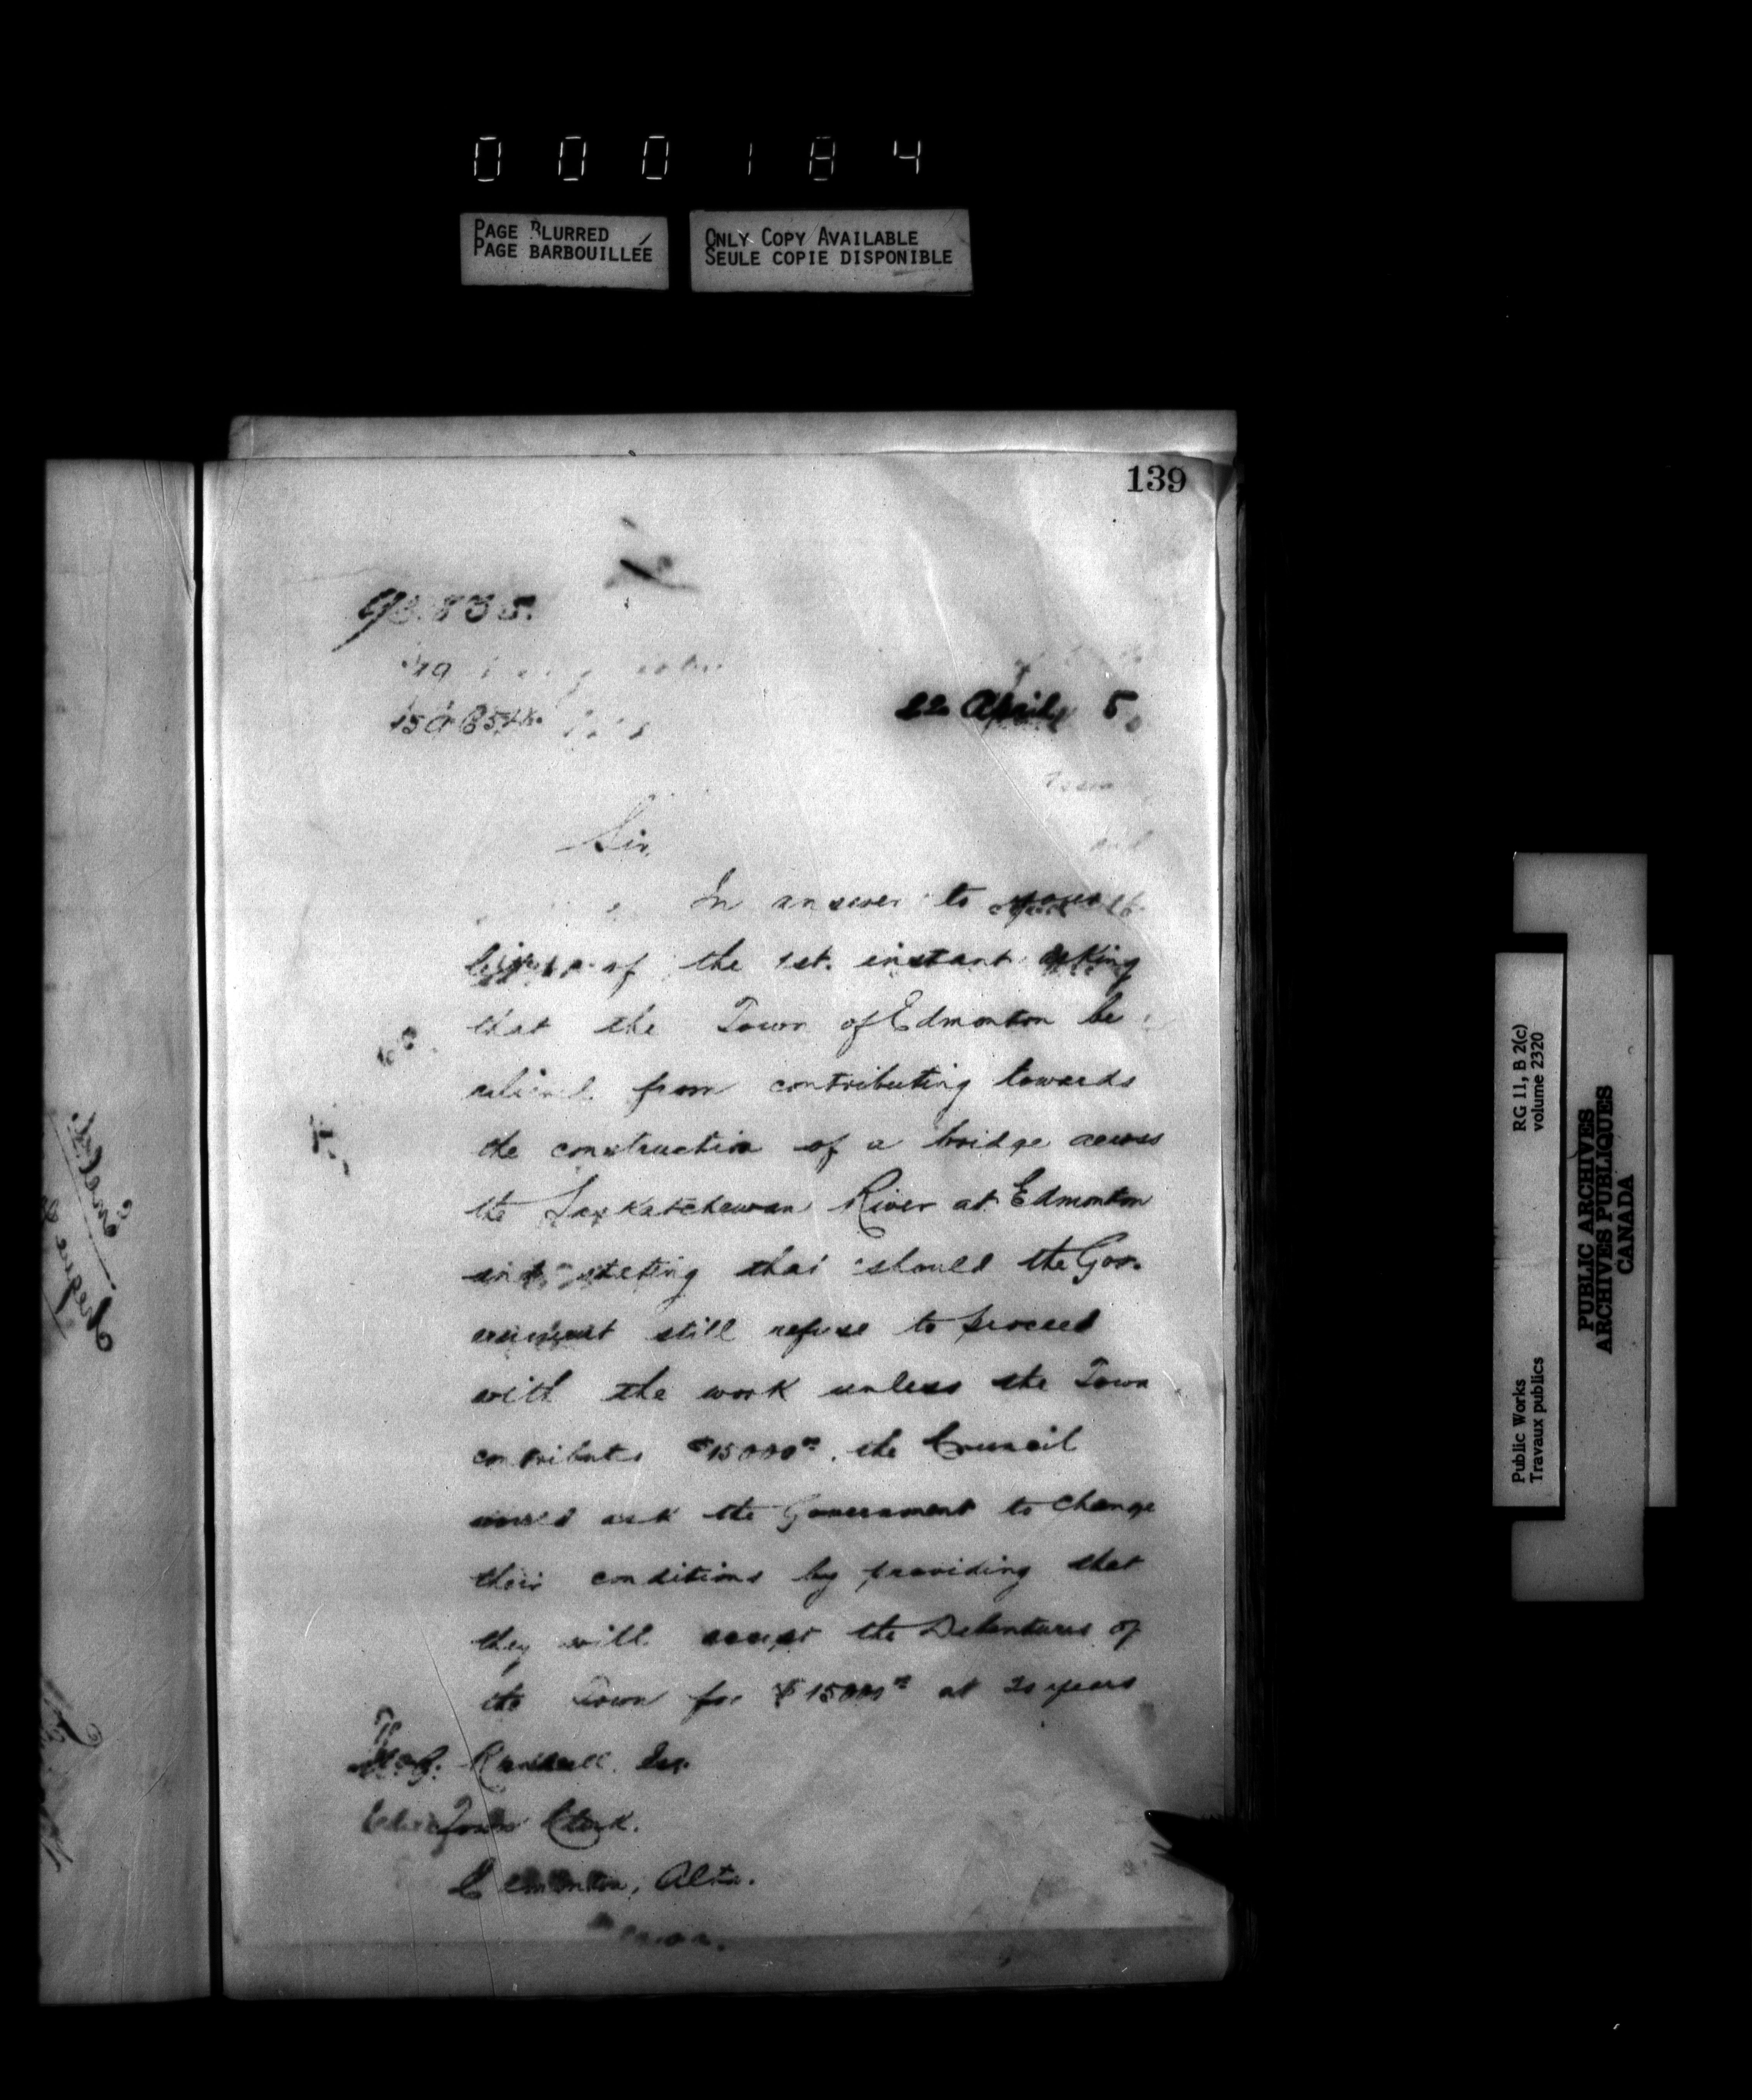 000184
PAGE BLURRED
PAGE BARBOUILLÉE
ONLY COPY AVAILABLE
SEULE COPIE DISPONIBLE
139
22 April 5
Sir,
In answer to your
of the 1st. instant asking
that the Town of Edmonton be
relieved from contributing towards
the construction of a bridge across
the Saskatchewan River at Edmonton
and stating that should the Gov-
ernment still refuse to proceed
with the work unless the Town
contributes $15000⁰⁰. the Council
would ask the Government to change
their conditions by providing that
they will accept the Debentures of
the Town for $15000⁰⁰ at 20 years
Esq.
Town Clerk.
Edmonton, Alta.
Public Works
Travaux publics
RG 11, B 2(c)
volume 2320
PUBLIC ARCHIVES
ARCHIVES PUBLIQUES
CANADA